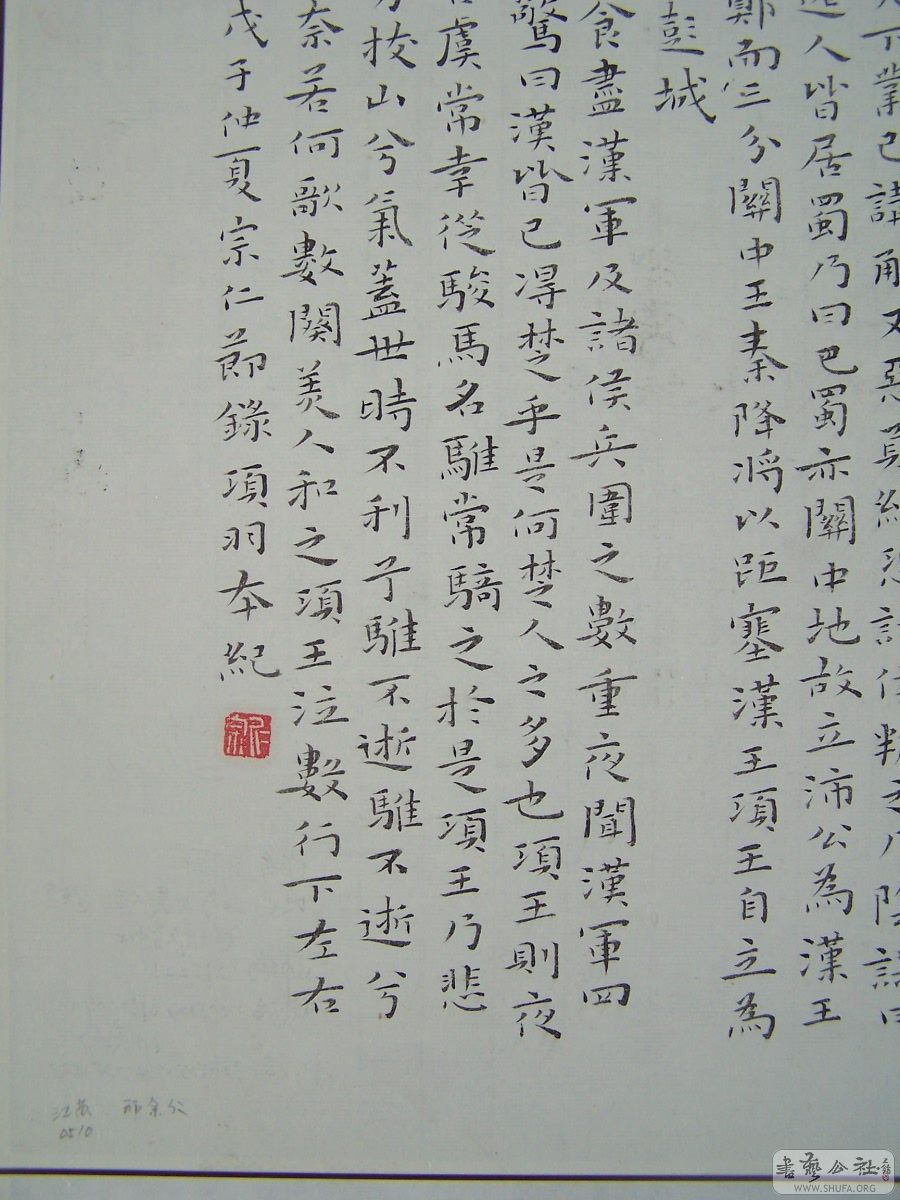 下業已講解又惡
人皆居蜀乃曰巴蜀亦關中地故立沛公為漢王
鄭而三分關中王秦降將以距塞漢王項王自立為
彭城
食盡漢軍及諸侯兵圍之數重夜聞漢軍四
驚曰漢皆已得楚乎是何楚人之多也項王則夜
虞常幸從駿馬名騅常騎之於是項王乃悲
拔山兮氣蓋世時不利兮騅不逝騅不逝兮
奈若何歌數闋美人和之項王泣數行下左右
戊子仲夏宗仁節錄項羽本紀
江蘇 邢宗仁
0510
書藝公社
WWW.SHUFA.ORG